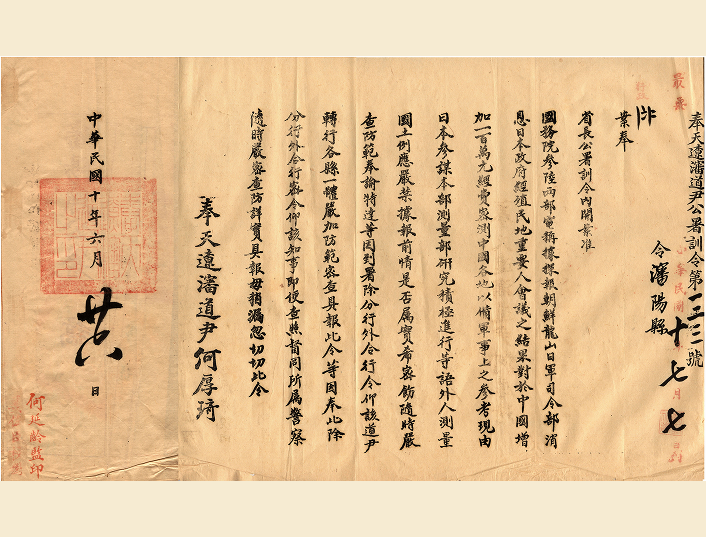 奉天遼瀋道尹公署訓令第一五三號
令瀋陽縣
中華民國十年七月七日到
案奉
省長公署訓令內開案准
國務院參陸兩部電稱據探報朝鮮龍山日軍司令部消
息日本政府經殖民地重要人會議之結果對於中國增
加一百萬元經費密測中國各地以備軍事上之參考現由
日本參謀本部測量部研究積極進行等語外人測量
國土例應嚴禁據報前情是否屬實希密飭隨時嚴
查防範奉諭特達等因到署除分行外合行令仰該道尹
轉行各縣一體嚴加防範密查具報此令等因奉此除
分行外合行密令仰該知事即便查照督同所屬警察
隨時嚴密查防詳實具報毋稍漏忽切切此令
奉天遼瀋道尹何厚琦
中華民國十年六月
廿六
日
何延齡監印